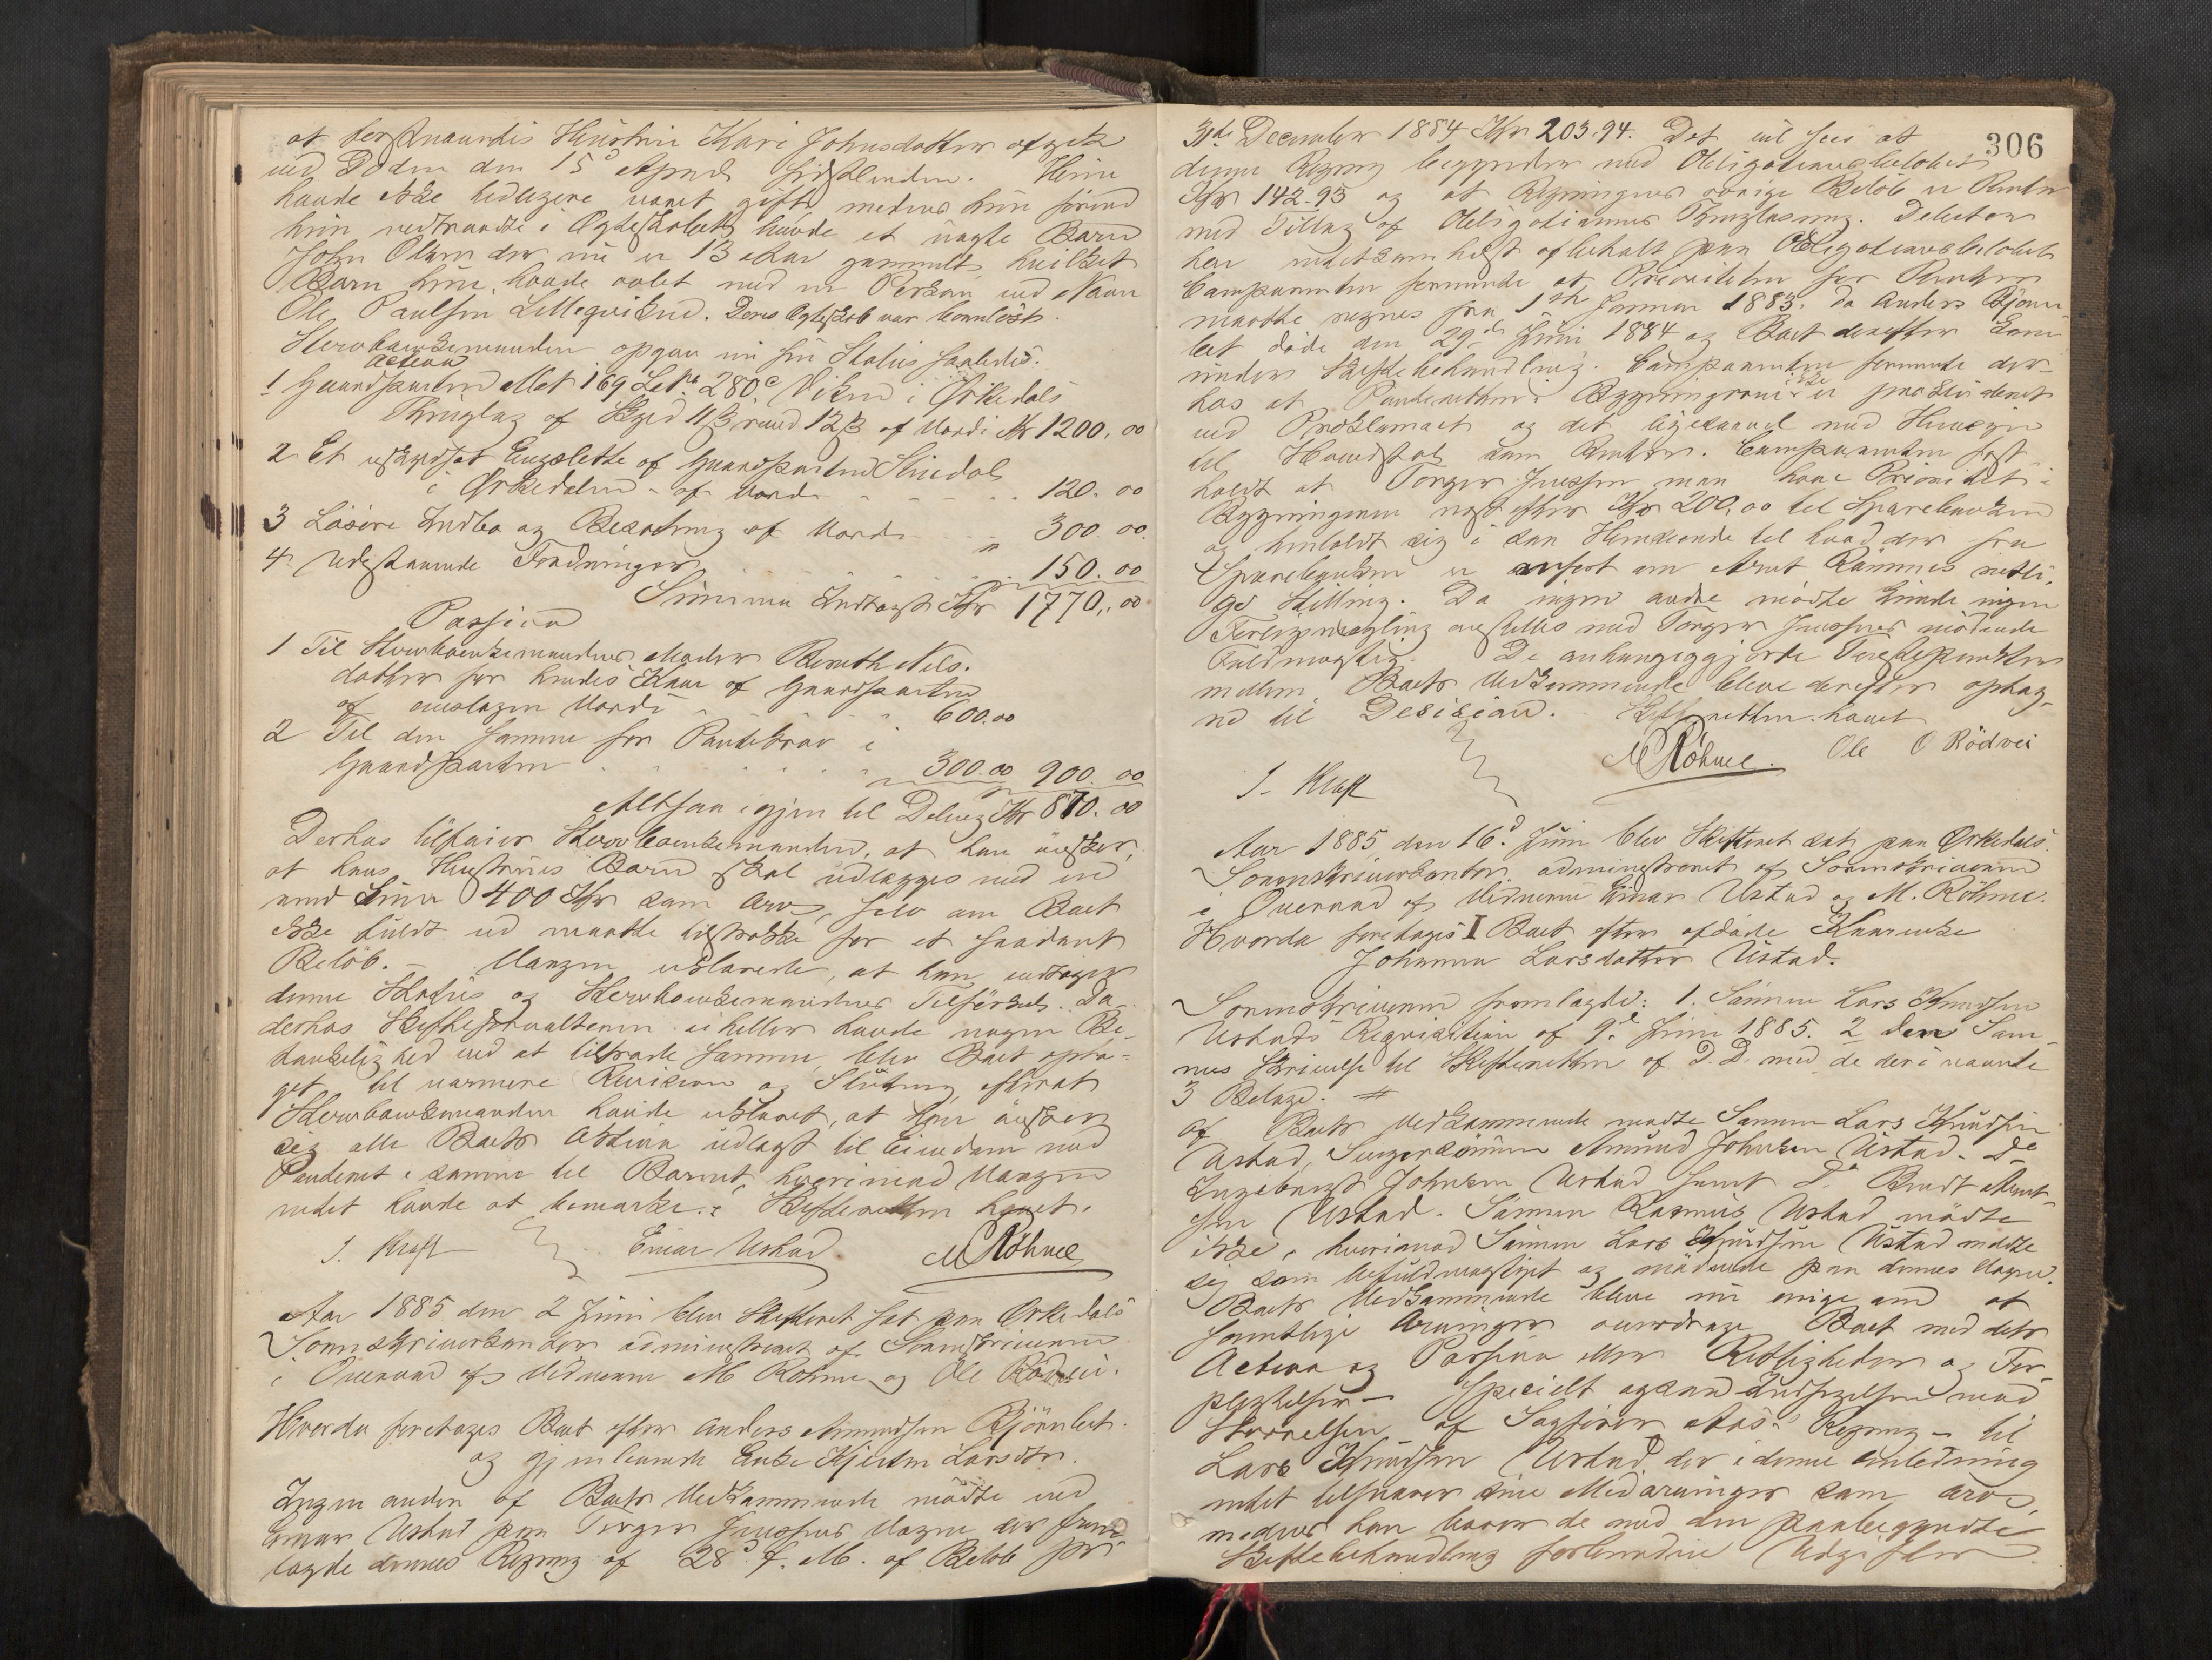 at Hustru Kari Johnsdatter afgik
ved Døden den 15d April sidstleden. Hun
havde ikke tidligere været gift, medens hun førend
hun indtraadte i Ægteskabet havde et uægte Barn
John Olsen der nu er 13 Aar gammelt, hvilket
Barn hun havde avlet med en Person ved Navn
Ole Paulsen Lillegviknd. Deres Ægteskab var barnløst.
Stervboenkemanden opgav nu sin Status saaledes:
Activa
1 Gaardparten Mat 169 LNo 280c Viken i Ørkedals
Thinglag af Skyld 11 β rund 12 β af Værdi Kr 1200.00
2 Et uskyldsat Engslette af Gaardparten
i Ørkedalen - af Værdi - - - 120.00
3 Løsøre Indbo og Besætning af Værdi " 300.00.
4 Udestaaende Fordringer - - - - 150.00
Summa Indtægt Kr 1770.00
Passiva
1 Til Stervboenkemandens Moder Bereth Nils-
datter for hendes Kaar af Gaardparten
af anslagen Værdi - - - 600.00
2 Til den samme for Pantebrev i
Gaardparten - - - - 300.00 900.00
Altsaa igjen til Deling Kr 870.00
Derhos tilføier Stervboenkemanden, at han ønsker,
at hans Hustrues Barn skal udlægges med en
rund Sum 400 Kr som Arv, selv om Boet
ikke fuldt ud maatte tilstrække for et saadant
Beløb. - Værgen erklærede, at han vedtager
denne Status og Stervboenkemandens Tilførsel. Da
derhos Skifteforvalteren ei heller havde nogen Be-
tænkelighed ved at tiltræde samme, blev Boet opta-
get til nærmere Revision og Slutning efterat
Stervboenkemanden havde erklæret, at han ønsker
sig alle Boets Activa udlagt til Eiendom mod
Panderet i samme til Barnet, hvorimod Værgen
intet havde at bemærke. Skifteretten hævet.
J. Kraft Einar Ustad M Røhme
Aar 1885 den 2 Juni blev Skifteret sat paa Ørkedals
Sorenskriverkontor administreret af Sorenskriveren
i Overvær af Vidnerne M Røhme og Ole Rødvei.
Hvorda foretages Boet efter Anders Amundsen Bjørnbet
og gjenlevende Enke Larsdtr.
Ingen anden af Boets Vedkommende mødte end
Einar Ustad paa Torger Vegne der frem-
lagde dennes Regning af 28d f. M. af Beløb pr
306
31te December 1884 Kr 203.94. Det vil sees at
denne Regning begynder med Obligationsbeløbet
Kr 142.93 og at Regningens øvrige Beløb er Renter
med Tillæg af Obligationens Thinglæsning. Debitor
har intetsomhelst afbetalt paa Obligationsbeløbet
Comparenten formente at Prioriteten for Renter
maatte regnes fra 1ste Januar 1883, da Anders Bjørn-
bet døde den 29de Juni 1884 og Boet derefter kom
under Skiftebehandling. Comparenten formente der-
hos at Panteretten i Bygningerne ikke er præcluderet
ved Proklamaet og det ligesaavel med Hensyn
til Hovedstol som Renter. Comparenten fast-
holdt at Torger maa have Prioritet i
Bygningerne næst efter Kr 200,00 til Sparebanken
og henholdt sig i saa Henseende til hvad der fra
Sparebanken er anført om Arnt Rømmes retli-
ge Stilling. Da ingen andre mødte kunde ingen
Forligsmægling anstilles med Torger mødende
Fuldmægtig. De anhængiggjorte Tvistepunkter
mellem Boets Vedkommende bleve derefter optag-
ne til Desision. Skifteretten hævet
J. Kraft M Røhme. Ole O Rødvei
Aar 1885 den 16d Juni blev Skifteret sat paa Ørkedals
Sorenskriverkontor administreret af Sorenskriveren
i Overvær af Vidnerne Einar Ustad og M. Røhme.
Hvorda foretages I Boet efter afdøde Kaarenke
Johanna Larsdatter Ustad.
Sorenskriveren fremlagde: 1. Sønnen Lars Knudsen
Ustads Reqvisition af 9d Juni 1885. 2 den Sam-
mes Skrivelse til Skifteretten af D. D. med de deri nævnte
3 Bilage. #
Af Boets Vedkommende mødte Sønnen Lars Knudsen
Ustad, Svigersønnen Amund Johnsen Ustad. De
Ingebrigt Johnsen Ustad samt Do Berdt Arnt-
sen Ustad. Sønnen Rasmus Ustad mødte
ikke, hvorimod Sønnen Lars Knudsen Ustad meldte
sig som befuldmægtiget og mødende paa dennes Vegne.
Boets Vedkommende bleve nu enige om at
samtlige Arvinger overdrage Boet med dets
Activa og Passiva eller Rettigheder og For-
pligtelser - specielt ogsaa Indsigelser mod
Størrelsen af Sagfører Aas's Regning - til
Lars Knudsen Ustad, der i denne Anledning
intet tilsvarer sine Medarvinger som Arv,
medens han bærer de med den paabegyndte
Skiftebehandling forbundne Udgifter